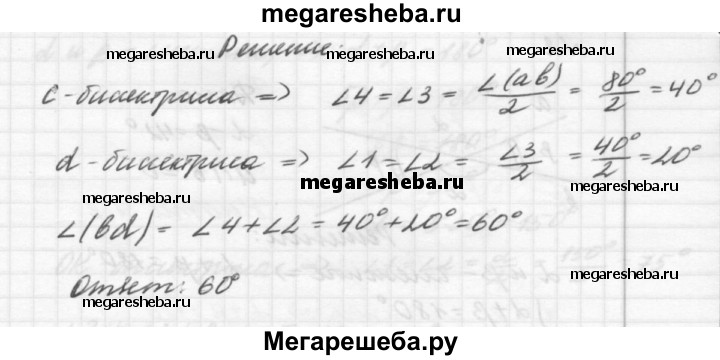 megaresheba.ru
Решение:
megaresheba.ru megaresheba.ru
c - биссектриса => ∠4 = ∠3 = ∠(ab)/2 = 80°/2 = 40°
d - биссектриса => ∠1 = ∠2 = ∠3/2 = 40°/2 = 20°
megaresheba.ru
megaresheba.ru megaresheba.ru
∠(bd) = ∠4 + ∠2 = 40° + 20° = 60°
megaresheba.ru
Ответ: 60°
megaresheba.ru
Мегарешеба.ру